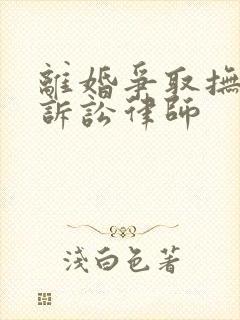 離婚爭取撫
訴訟律師
淺白色著